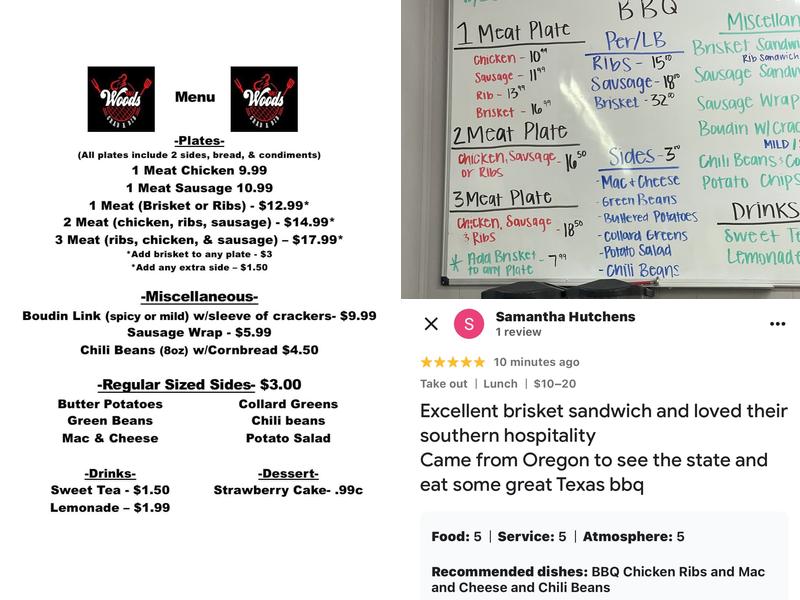 Woods
Menu
Woods
-Plates-
(All plates include 2 sides, bread, & condiments)
1 Meat Chicken 9.99
1 Meat Sausage 10.99
1 Meat (Brisket or Ribs) - $12.99*
2 Meat (chicken, ribs, sausage) - $14.99*
3 Meat (ribs, chicken, & sausage) – $17.99*
*Add brisket to any plate - $3
*Add any extra side – $1.50
-Miscellaneous-
Boudin Link (spicy or mild) w/sleeve of crackers- $9.99
Sausage Wrap - $5.99
Chili Beans (8oz) w/Cornbread $4.50
-Regular Sized Sides- $3.00
Butter Potatoes
Green Beans
Mac & Cheese
Collard Greens
Chili beans
Potato Salad
-Drinks-
Sweet Tea - $1.50
Lemonade – $1.99
-Dessert-
Strawberry Cake- .99c
BBQ
1 Meat Plate
Chicken - 10⁹⁹
Sausage - 11⁹⁹
Rib - 13⁹⁹
Brisket - 16⁹⁹
2 Meat Plate
Chicken, Sausage
or Ribs
- 16⁵⁰
3 Meat Plate
Chicken, Sausage
& Ribs
- 18⁵⁰
* Add Brisket
to any Plate
- 7⁹⁹
Per/LB
Ribs - 15⁰⁰
Sausage - 18⁰⁰
Brisket - 32⁰⁰
Sides - 3⁰⁰
- Mac + Cheese
- Green Beans
- Buttered Potatoes
- Collard Greens
- Potato Salad
- Chili Beans
Miscellan
Brisket Sandwi
Rib Sandwich
Sausage Sandw
Sausage Wrap
Boudin w/Crac
MILD /
Chili Beans & Co
Potato Chips
Drinks
Sweet Te
Lemonade
S
Samantha Hutchens
1 review
10 minutes ago
Take out | Lunch | $10–20
Excellent brisket sandwich and loved their
southern hospitality
Came from Oregon to see the state and
eat some great Texas bbq
Food: 5 | Service: 5 | Atmosphere: 5
Recommended dishes: BBQ Chicken Ribs and Mac
and Cheese and Chili Beans